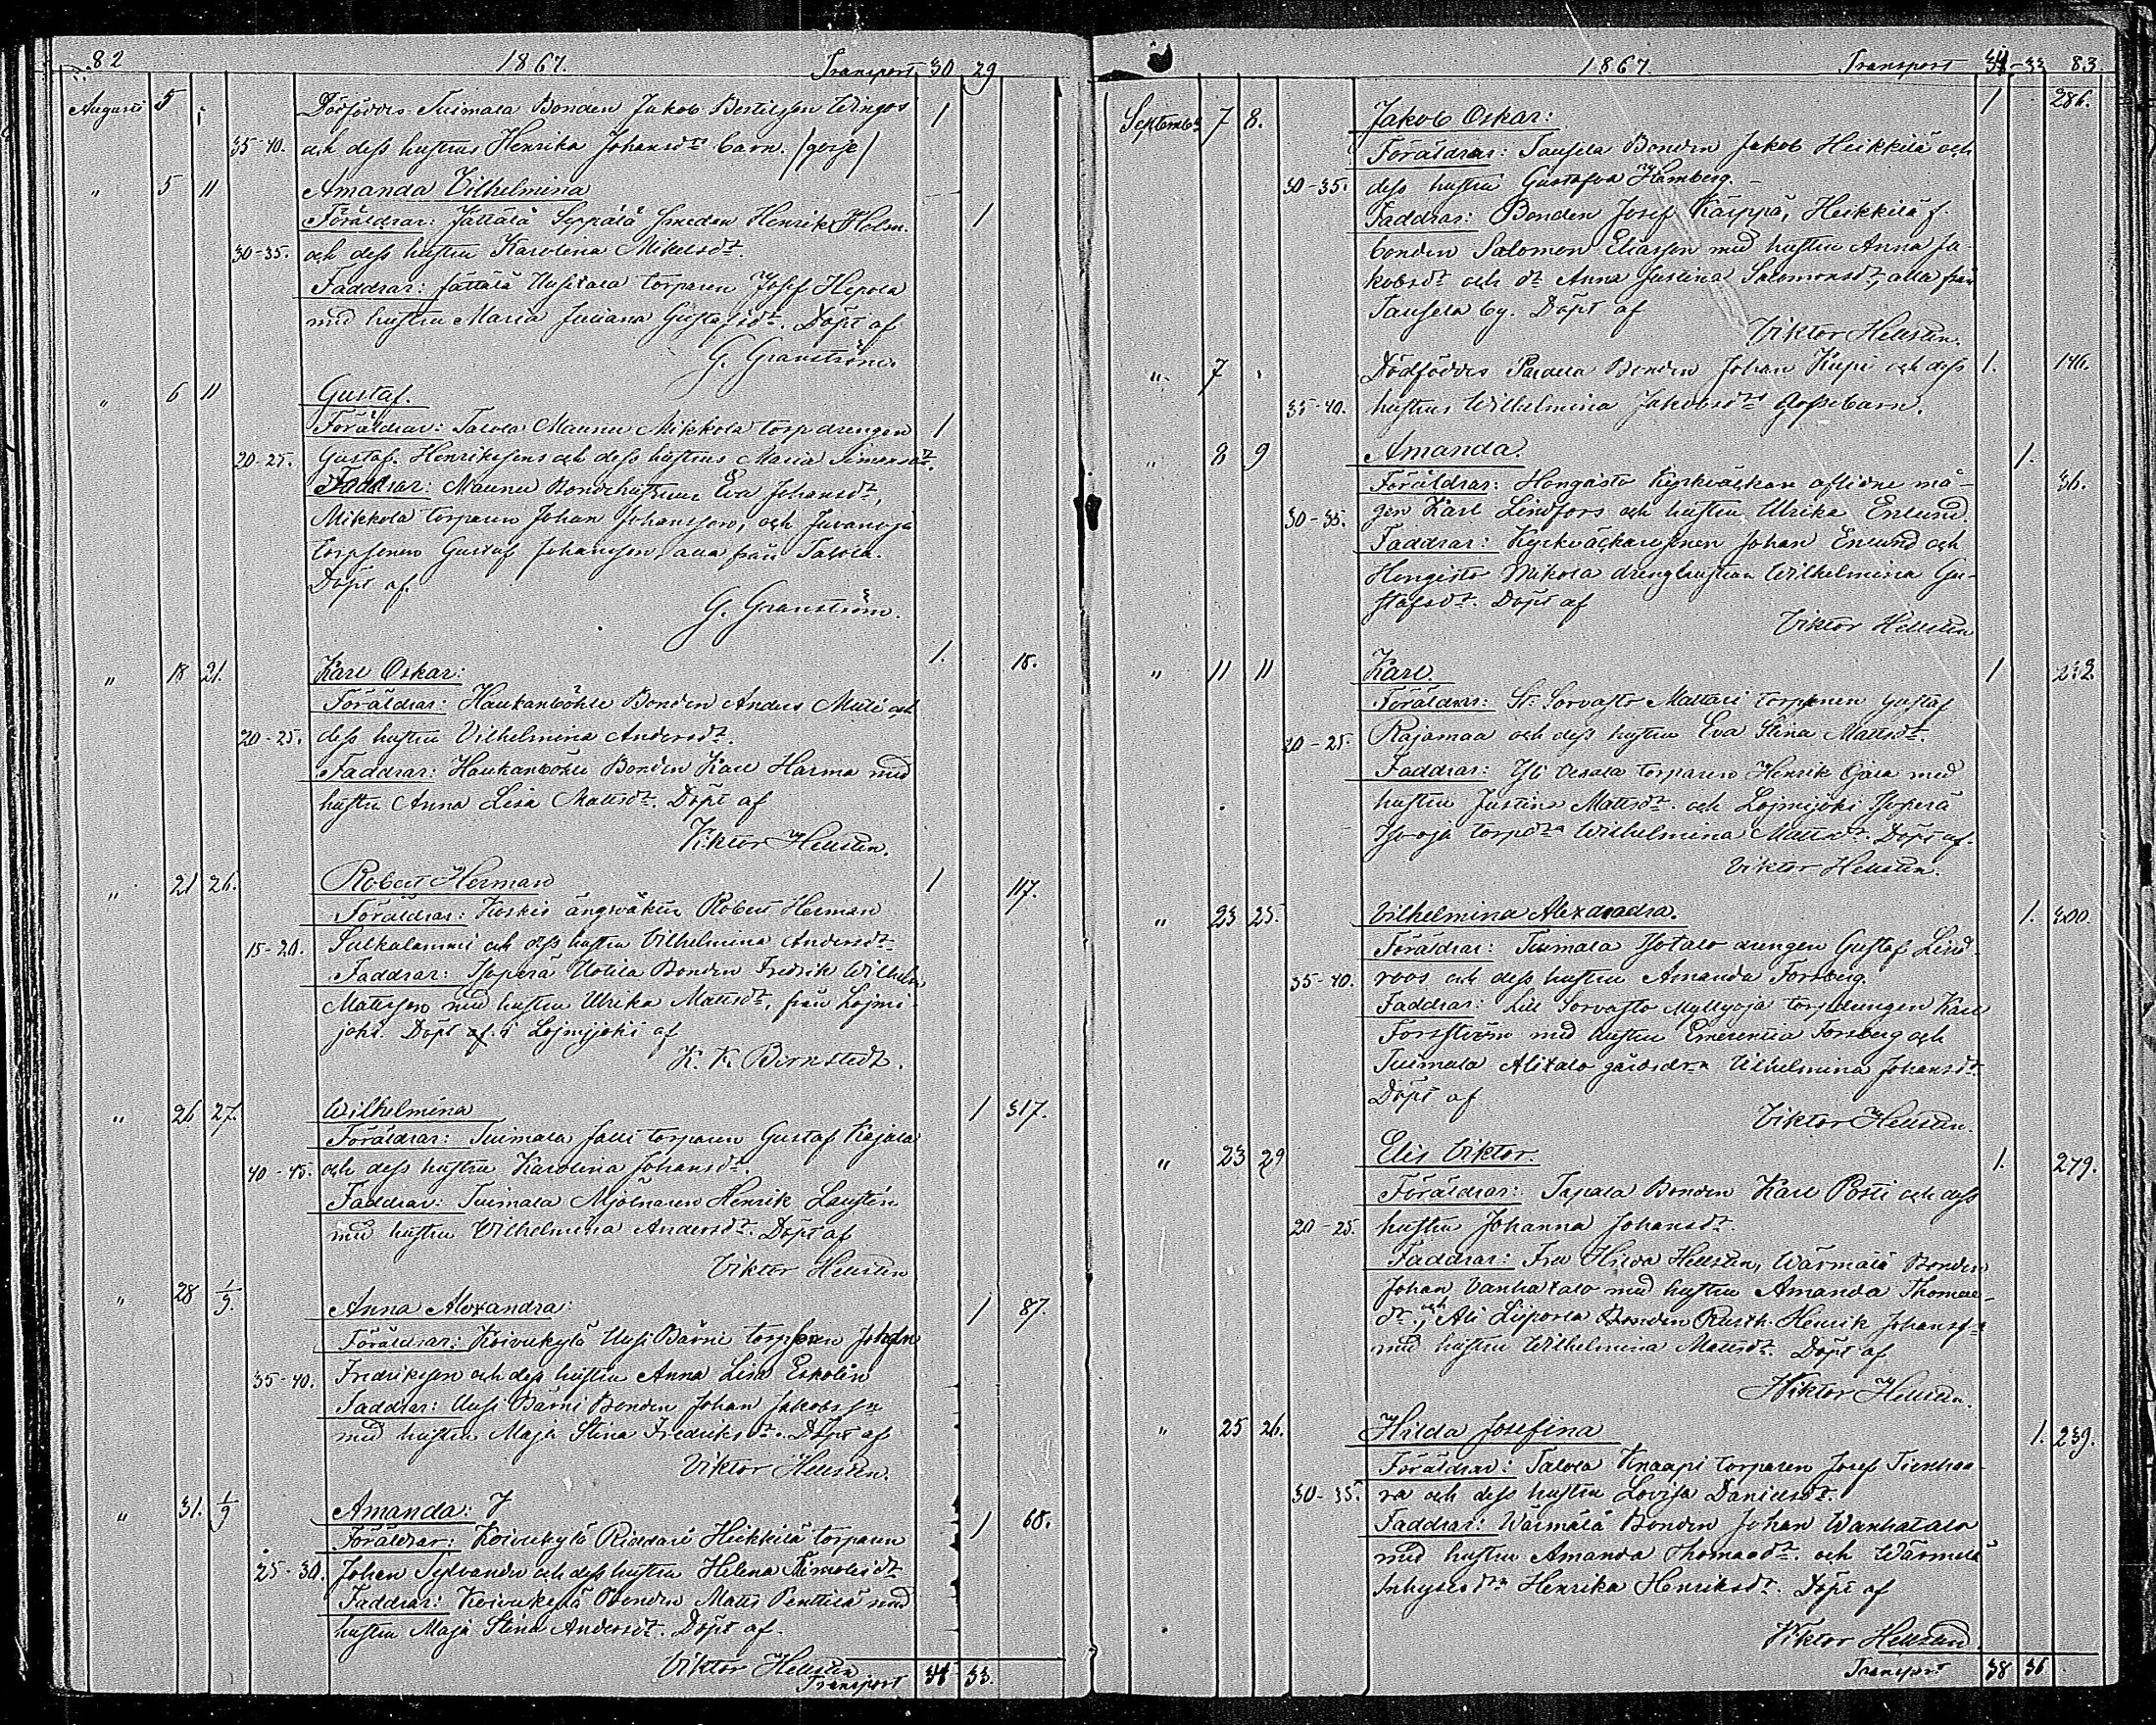 82 1867. Transport 30 29
Augusti 5 Dödföddes Tuimala Bonden Jakob Bertilsson 1
35-40. och dess hustrus Henrika Johansdrs barn. /gosse/
" 5 11 Amanda Vilhelmina
Föräldrar: Jättälä Seppälä Smeden Henrik Holm 1
30-35. och dess hustru Karolina Mikelsdr.
Faddrar: Jättälä Uusitalo torparen Josef Hepola
med hustru Maria Juliana Gustafsdr. Döpt af
G. Granström.
" 6 11 Gustaf.
Föräldrar: Talola Maunu Mikkola torpdrengen 1
20-25. Gustaf Henrikssons och dess hustrus Maria Simonsdr.
Faddrar: Maunu Bondehustrun Eva Johansdr,
Mikkola torparen Johan Johansson, och
torpsonen Gustaf Johansson, alla från Talola.
Döpt af.
G. Granström.
" 18 21. Karl Oskar: 1. 15.
Föräldrar: Haukanböhle Bonden Anders Muli och
20-25. dess hustru Vilhelmina Andersdr.
Faddrar: Haukanböhle Bonden Karl Harma med
hustru Anna Lisa Mattsdr. Döpt af
Viktor Hellstén.
" 21 26. Robert Herman 1 117.
Föräldrar: Koskis ängväktn Robert Herman
15-20. Sulkalammi och dess hustru Vilhelmina Andersdr
Faddrar: Isoperä Uotila Bonden Fredrik Wilhelm
Mattsson med hustru Ulrika Mattsdr, från Lojmi-
joki. Döpt af i Lojmijoki af
K. K. Börnstedt.
" 26 27. Wilhelmina 1 317.
Föräldrar: Tuimala Jalli torparen Gustaf Kajala
40-45. och dess hustru Karolina Johansdr.
Faddrar: Tuimala Mjölnaren Henrik Laustén
med hustru Vilhelmina Andersdr. Döpt af
Viktor Hellstén
" 28 1/9. Anna Alexandra: 1 87.
Föräldrar: Koivukylä Uusi Bärni torpsonen Johan
35-40. Fredriksson och dess hustru Anna Lisa Eskolin
Faddrar: Uusi Bärni Bonden Johan Jakobsson
med hustru Maja Stina Fredriksdr. Döpt af
Viktor Hellstén.
" 31. 1/9 Amanda: 1 68.
Föräldrar: Koivukylä Riddari Heikkilä torparen
25-30. Johan Sylvander och dess hustru Helena Simonsdr
Faddrar: Koivukylä Bonden Matts Penttilä med
hustru Maja Stina Andersdr. Döpt af.
Viktor Hellstén
Transport 34 33.
1867. Transport 34-33 83.
September 7 8. Jakob Oskar: 1 286.
Föräldrar: Tausela Bonden Jakob Heikkilä och
30-35. dess hustru Gustafva Hamberg.
Faddrar: Bonden Josef Käippä, Heikkilä f.
bonden Salomon Eliasson med hustru Anna Ja-
kobsdr och dr Anna Justina Salomonsdr, alla från
Tausela by. Döpt af
Viktor Hellstén.
" 7 Dödföddes Paidela Bonden Johan Kiipi och dess 1. 146.
35-40. hustrus Wilhelmina Jakobsdrs Gossebarn.
" 8 9 Amanda. 1.
Föräldrar: Hongisto Kyrkväkaren aflidne må- 36.
30-35. gen Karl Lindfors och hustru Ulrika Enlund.
Faddrar: Kyrkväckaresonen Johan Enlund och
Hongisto Mikola drenghustrun Wilhelmina Gu-
stafsdr. Döpt af
Viktor Hellstén
" 11 11 Karl. 1 212.
Föräldrar: St. Sorvasto Mattari torpsonen Gustaf
20-25. Rajamaa och dess hustru Eva Stina Mattsdr.
Faddrar: Yli Vesala torparen Henrik Ojala med
hustru Justina Mattsdr. och Lojmijoki Isoperä
Iso-oja torpdr. Wilhelmina Mattsdr. Döpt af.
Viktor Hellstén.
" 23 25. Vilhelmina Alexandra. 1. 300.
Föräldrar: Tuimala Isotalo drengen Gustaf Lind-
35-40. roos och dess hustru Amanda Forsberg.
Faddrar: Lill Sorvasto Myllyoja torpdrengen Karl
Forsström med hustru Emerentia Forsberg och
Tuimala Alitalo gårdsdrn Vilhelmina Johansdr.
Döpt af
Viktor Hellstén.
" 23 29 Elis Viktor. 1. 279.
Föräldrar: Tapala Bonden Karl Posti och dess
20-25. hustru Johanna Johansdr.
Faddrar: Fru Hilda Hellstén, Wärmälä Bonden
Johan Vanhatalo med hustru Amanda Thomae-
dr., och Ali Liipola Bonden Rusth. Henrik Johansson
med hustru Wilhelmina Mattsdr. Döpt af
Viktor Hellstén.
" 25 26. Hilda Josefina 1. 239.
Föräldrar: Talola Knaapi torparen Josef Tienhaa-
30-35. ra och dess hustru Lovisa Danielsdr.
Faddrar: Wärmälä Bonden Johan Wanhatalo
med hustru Amanda Thomaedr. och Wärmälä
Inhysesdr. Henrika Henriksdr. Döpt af
Viktor Hellstén
Transport 38 36